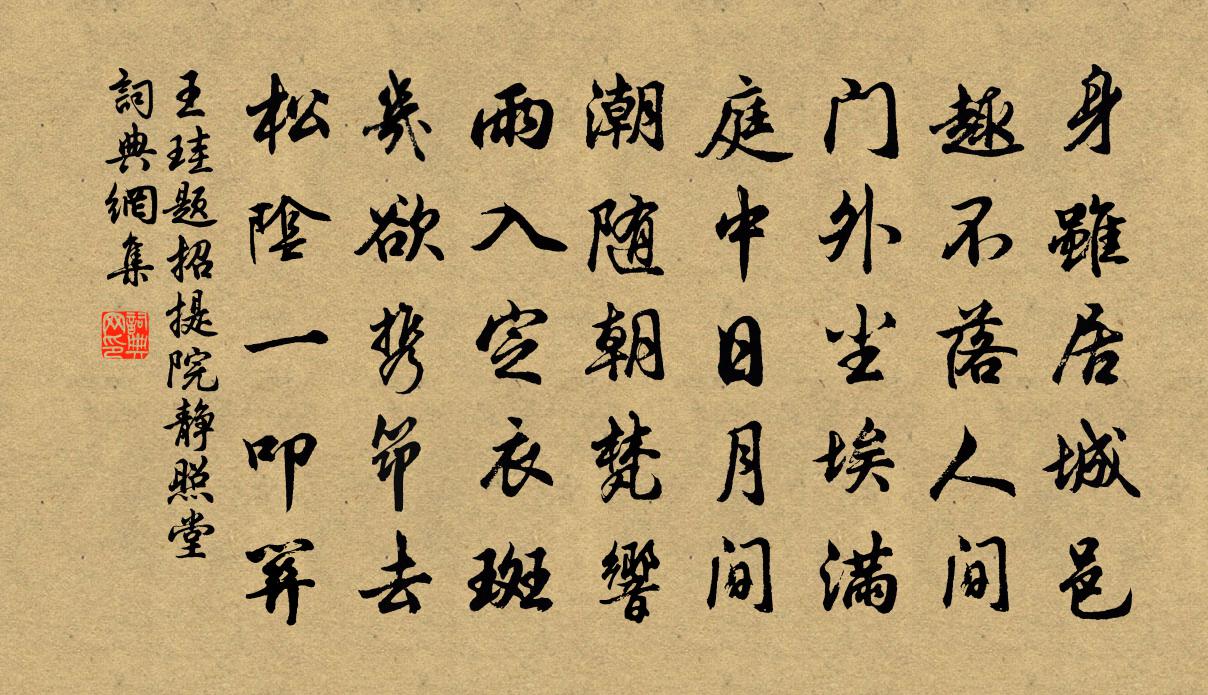 身雖居城邑
趣不落人间
门外尘埃满
庭中日月间
潮随朝梵響
雨入定衣斑
幾欲携筇去
松陰一叩關
王珪题招提院静照堂
詞典網集
詞典网印